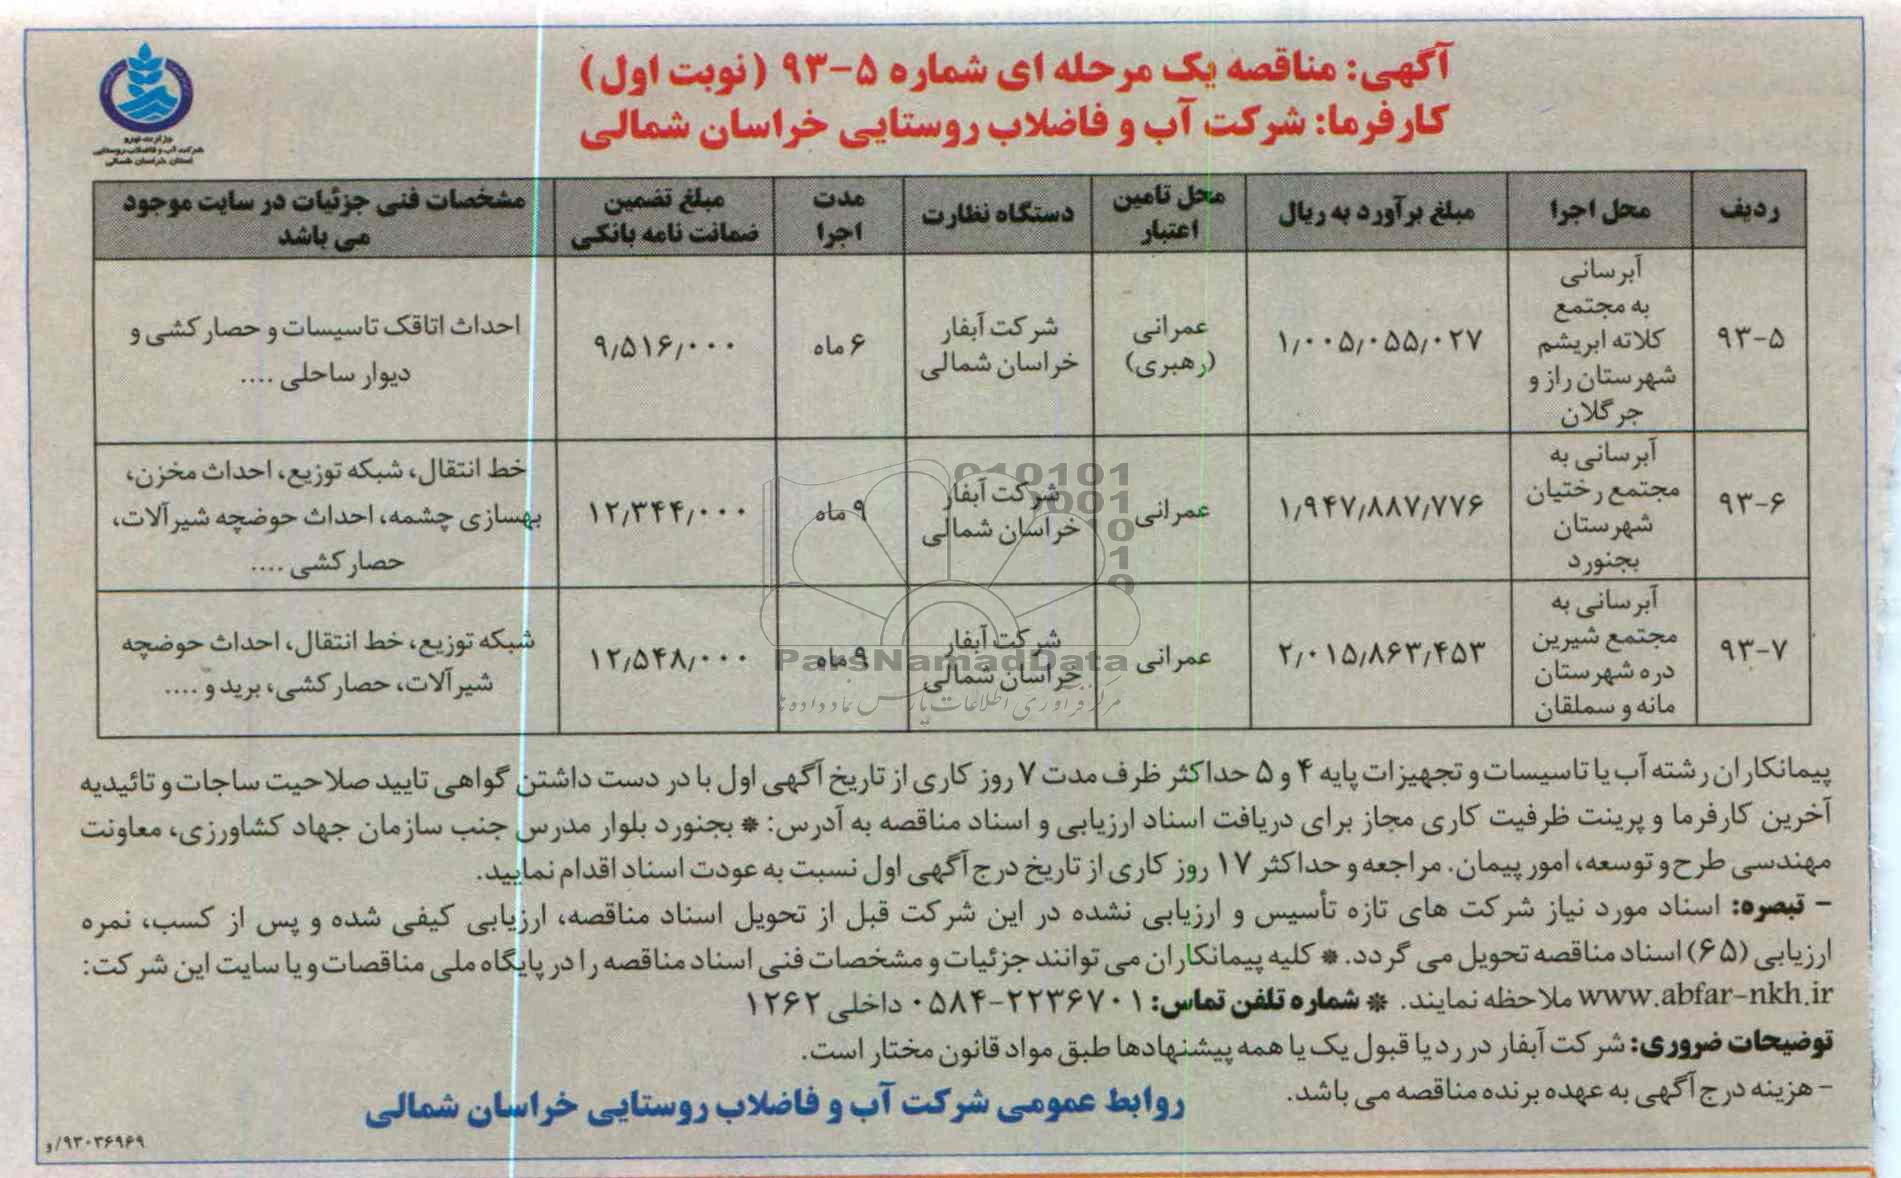 آگهی: مناقصه یک مرحله ای شماره ۵-۹۳ (نوبت اول)
کارفرما: شرکت آب و فاضلاب روستایی خراسان شمالی
وزارت نیرو
شرکت آب و فاضلاب روستایی
استان خراسان شمالی
ردیف
محل اجرا
مبلغ برآورد به ریال
محل تامین
اعتبار
دستگاه نظارت
مدت
اجرا
مبلغ تضمین
ضمانت نامه بانکی
مشخصات فنی جزئیات در سایت موجود
می باشد
۹۳-۵
آبرسانی
به مجتمع
کلاته ابریشم
شهرستان راز و
جرگلان
۱٫۰۰۵٫۰۵۵٫۰۲۷
عمرانی
(رهبری)
شرکت آبفار
خراسان شمالی
۶ ماه
۹٫۵۱۶٫۰۰۰
احداث اتاقک تاسیسات و حصارکشی و
دیوار ساحلی ....
۹۳-۶
آبرسانی به
مجتمع رختیان
شهرستان
بجنورد
۱٫۹۴۷٫۸۸۷٫۷۷۶
عمرانی
شرکت آبفار
خراسان شمالی
۹ ماه
۱۲٫۳۴۴٫۰۰۰
خط انتقال، شبکه توزیع، احداث مخزن،
بهسازی چشمه، احداث حوضچه شیرآلات،
حصارکشی ....
۹۳-۷
آبرسانی به
مجتمع شیرین
دره شهرستان
مانه و سملقان
۲٫۰۱۵٫۸۶۳٫۴۵۳
عمرانی
شرکت آبفار
خراسان شمالی
۹ ماه
۱۲٫۵۴۸٫۰۰۰
شبکه توزیع، خط انتقال، احداث حوضچه
شیرآلات، حصارکشی، برید و ....
010101
1001
10
1
0
ParsNamadData
مرکز فرآوری اطلاعات پارس نماد داده ها
پیمانکاران رشته آب یا تاسیسات و تجهیزات پایه ۴ و ۵ حداکثر ظرف مدت ۷ روز کاری از تاریخ آگهی اول با در دست داشتن گواهی تایید صلاحیت ساجات و تائیدیه
آخرین کارفرما و پرینت ظرفیت کاری مجاز برای دریافت اسناد ارزیابی و اسناد مناقصه به آدرس: * بجنورد بلوار مدرس جنب سازمان جهاد کشاورزی، معاونت
مهندسی طرح و توسعه، امور پیمان. مراجعه و حداکثر ۱۷ روز کاری از تاریخ درج آگهی اول نسبت به عودت اسناد اقدام نمایید.
- تبصره: اسناد مورد نیاز شرکت های تازه تأسیس و ارزیابی نشده در این شرکت قبل از تحویل اسناد مناقصه، ارزیابی کیفی شده و پس از کسب، نمره
ارزیابی (۶۵) اسناد مناقصه تحویل می گردد. * کلیه پیمانکاران می توانند جزئیات و مشخصات فنی اسناد مناقصه را در پایگاه ملی مناقصات و یا سایت این شرکت:
www.abfar-nkh.ir ملاحظه نمایند. * شماره تلفن تماس: ۲۲۳۶۷۰۱-۰۵۸۴ داخلی ۱۲۶۲
توضیحات ضروری: شرکت آبفار در رد یا قبول یک یا همه پیشنهادها طبق مواد قانون مختار است.
- هزینه درج آگهی به عهده برنده مناقصه می باشد.
روابط عمومی شرکت آب و فاضلاب روستایی خراسان شمالی
۹۳۰۳۶۹۶۹/و